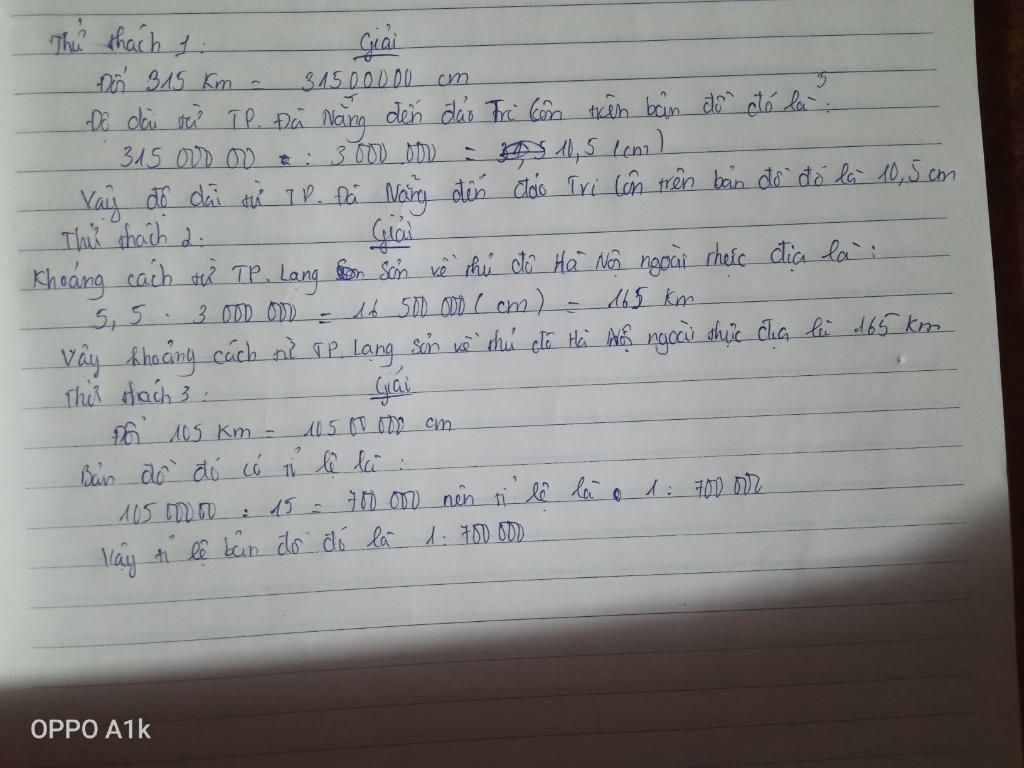 Thử thách 1: Giải
Đổi 315 Km = 31500000 cm
Độ dài từ TP. Đà Nẵng đến đảo Tri Côn trên bản đồ đó là:
315 000 00 : 3 000 000 = 10,5 (cm)
Vậy độ dài từ TP. Đà Nẵng đến đảo Tri Côn trên bản đồ đó là 10,5 cm
Thử thách 2: Giải
Khoảng cách từ TP. Lạng Sơn về thủ đô Hà Nộ ngoài thực địa là:
5,5 . 3 000 000 = 16 500 000 (cm) = 165 Km
Vậy khoảng cách từ TP. Lạng Sơn về thủ đô Hà Nộ ngoài thực địa là 165 Km
Thử thách 3: Giải
Đổi 105 Km = 105 00 000 cm
Bản đồ đó có tỉ lệ là:
105 00000 : 15 = 700 000 nên tỉ lệ là 1 : 700 000
Vậy tỉ lệ bản đồ đó là 1: 700 000
OPPO A1k